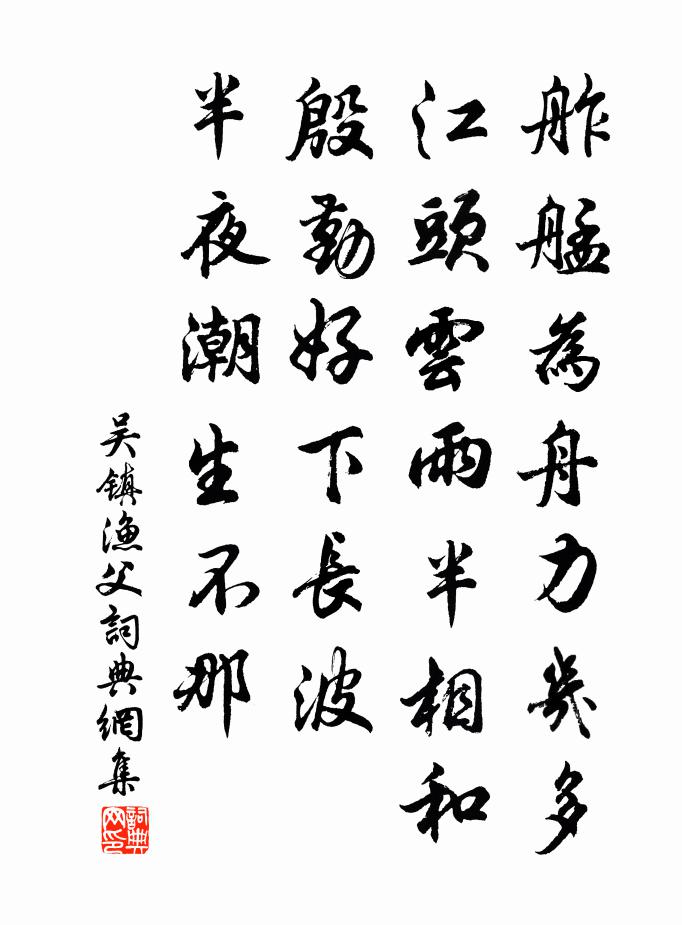 舴艋為舟力幾多
江頭雲雨半相和
殷勤好下長波
半夜潮生不那
吴鎮漁父詞典網集
詞典网印